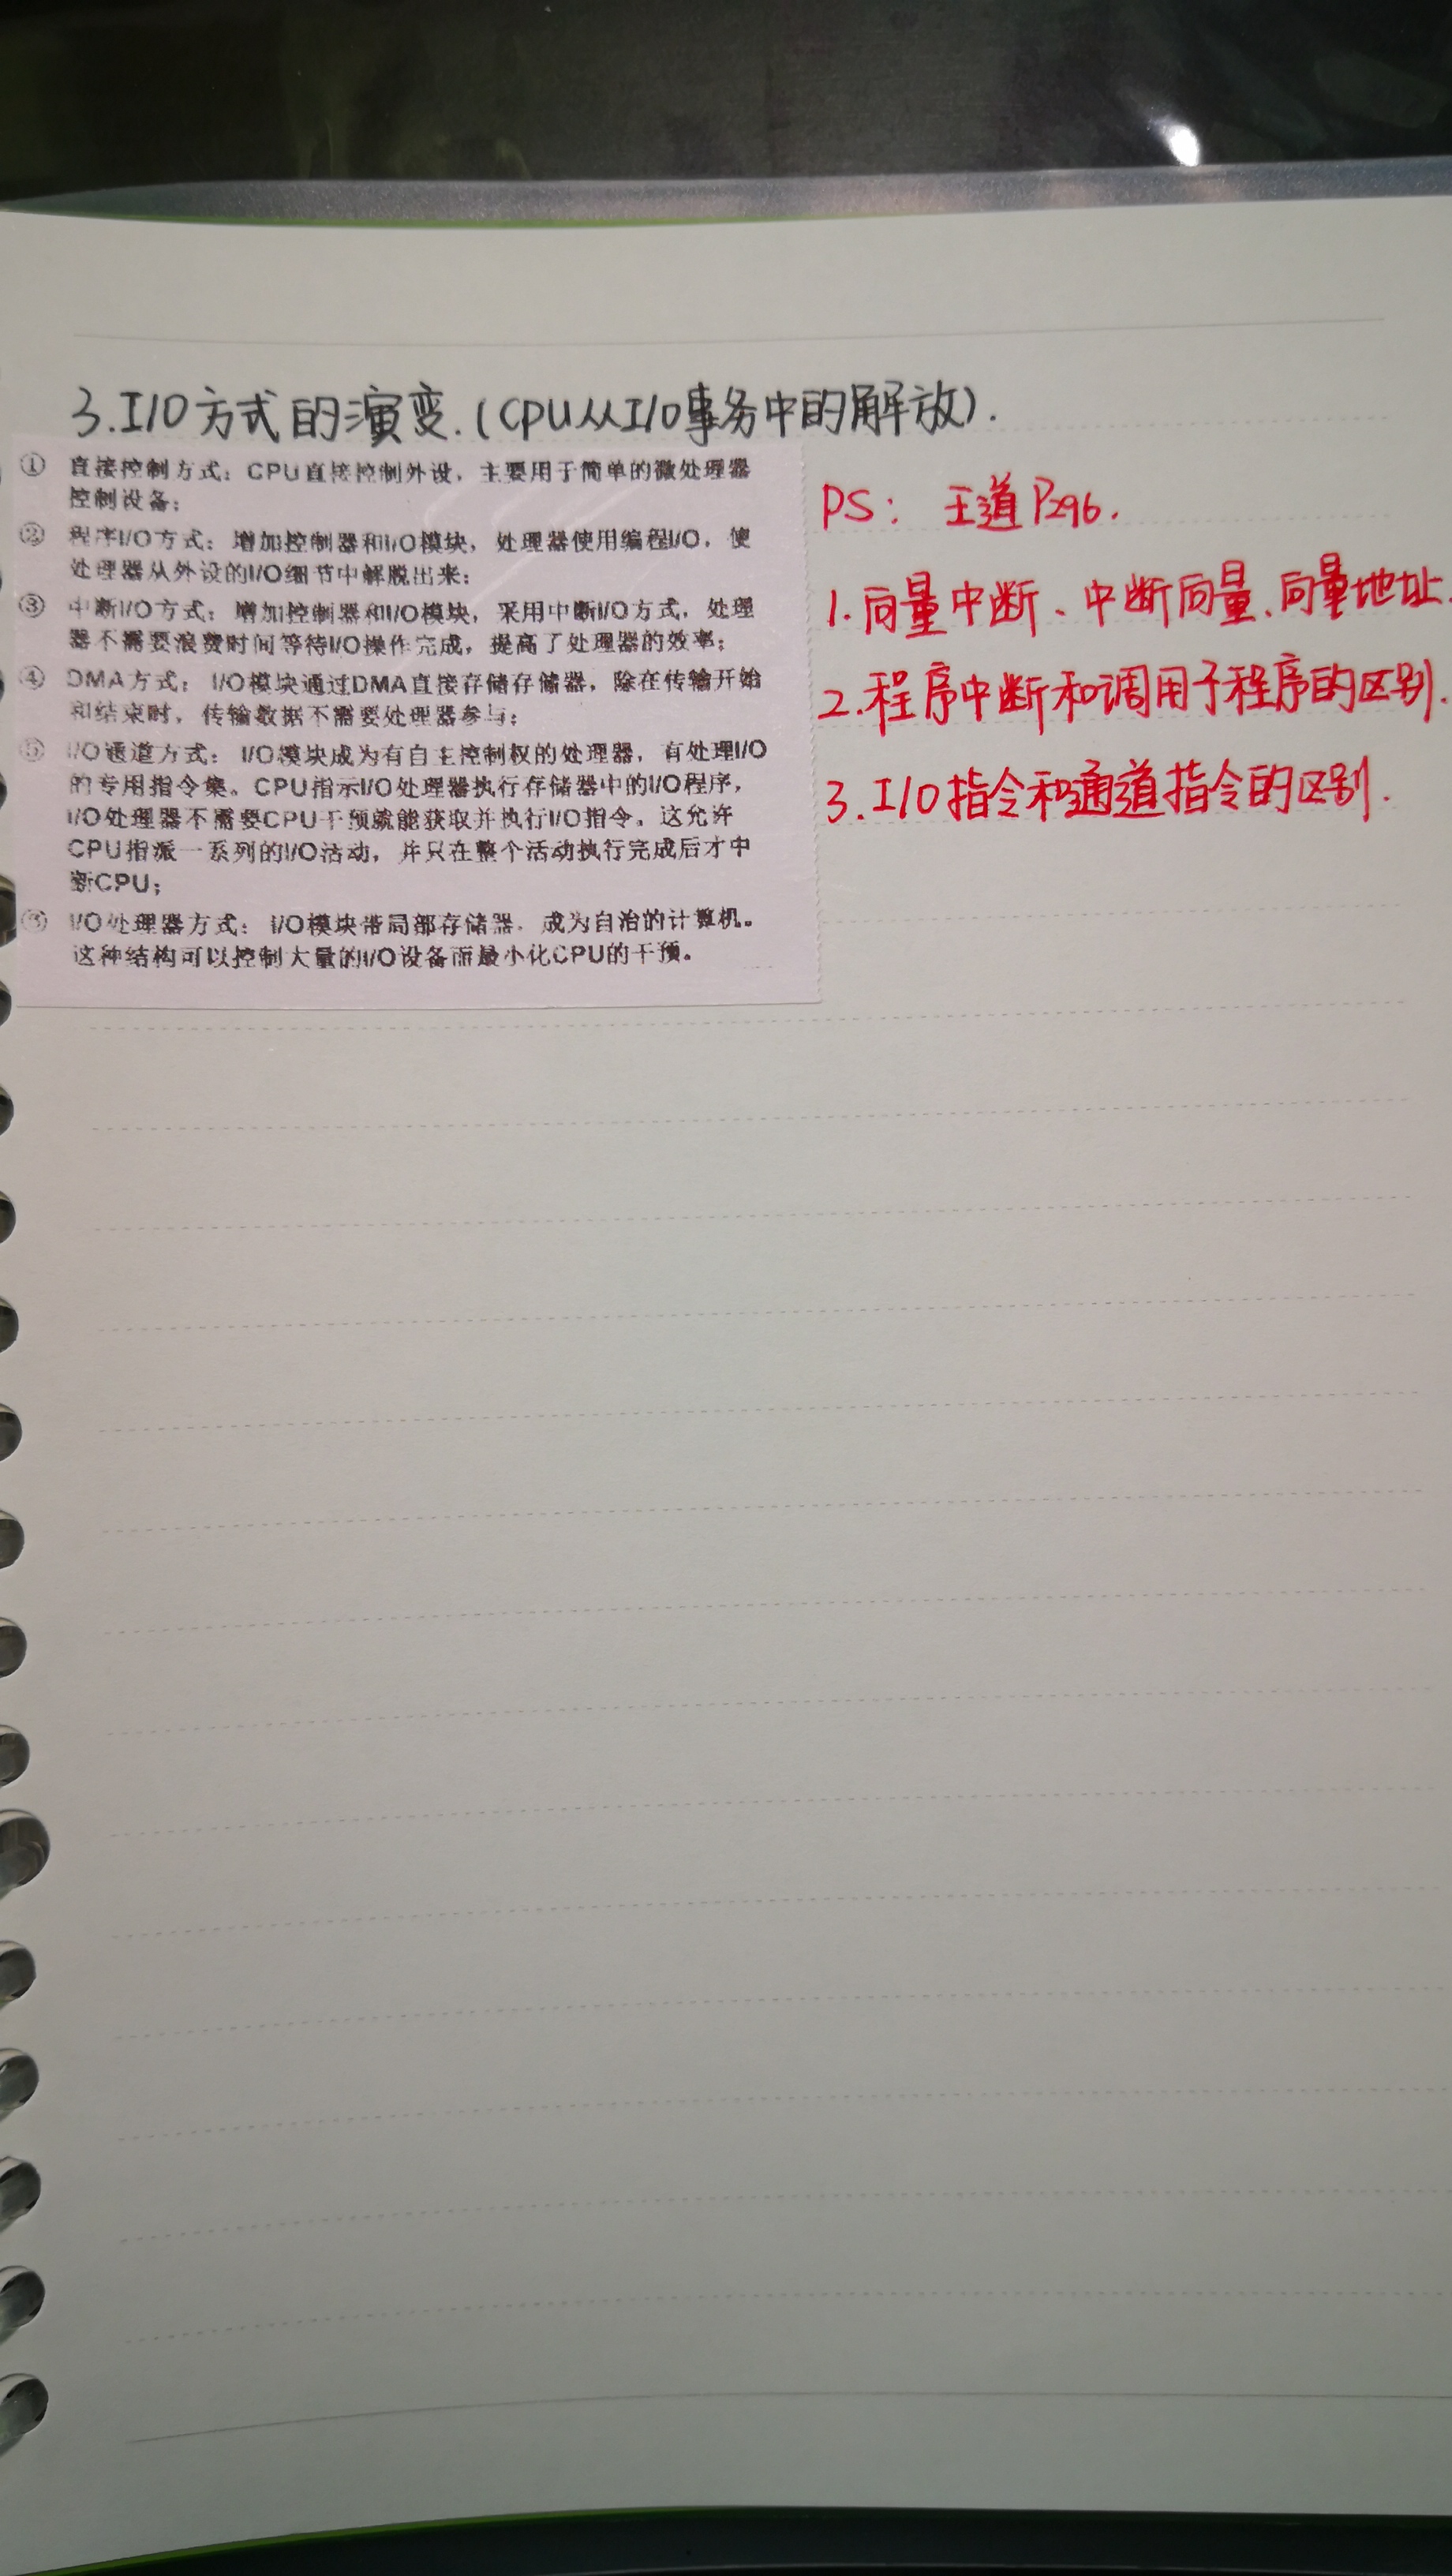 3.I/O方式的演变.(CPU从I/O事务中的解放).
① 直接控制方式：CPU直接控制外设，主要用于简单的微处理器
控制设备；
② 程序I/O方式：增加控制器和I/O模块，处理器使用编程I/O，使
处理器从外设的I/O细节中解脱出来；
③ 中断I/O方式：增加控制器和I/O模块，采用中断I/O方式，处理
器不需要浪费时间等待I/O操作完成，提高了处理器的效率；
④ DMA方式：I/O模块通过DMA直接存储存储器，除在传输开始
和结束时，传输数据不需要处理器参与；
⑤ I/O通道方式：I/O模块成为有自主控制权的处理器，有处理I/O
的专用指令集。CPU指示I/O处理器执行存储器中的I/O程序，
I/O处理器不需要CPU干预就能获取并执行I/O指令。这允许
CPU指派一系列的I/O活动，并只在整个活动执行完成后才中
断CPU；
I/O处理器方式：I/O模块带局部存储器，成为自治的计算机。
这种结构可以控制大量的I/O设备而最小化CPU的干预。
PS： 王道P296.
1.向量中断、中断向量、向量地址.
2.程序中断和调用子程序的区别.
3.I/O指令和通道指令的区别.